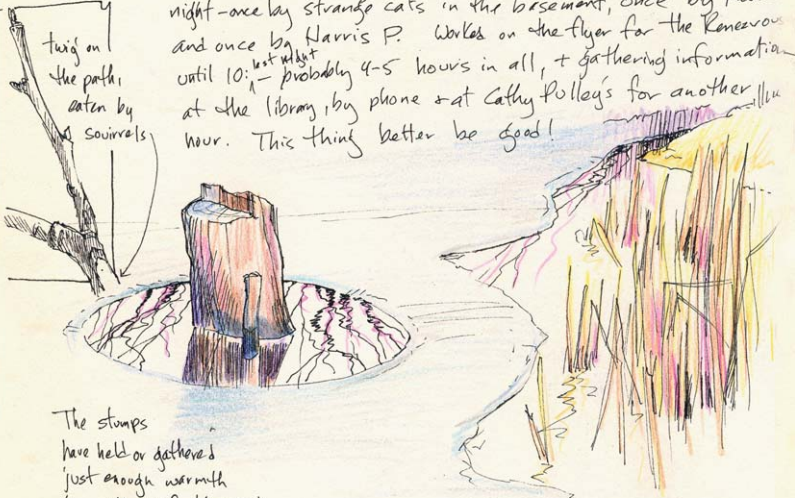 night-once by strange cats in the basement, once by
and once by Harris P. Worked on the flyer for the Renezvous
until 10: last night - probably 4-5 hours in all, + gathering information
at the library, by phone + at Cathy Pulley's for another
hour. This thing better be good!
twig on
the path,
eaten by
squirrels
The stumps
have held or gathered
just enough warmth